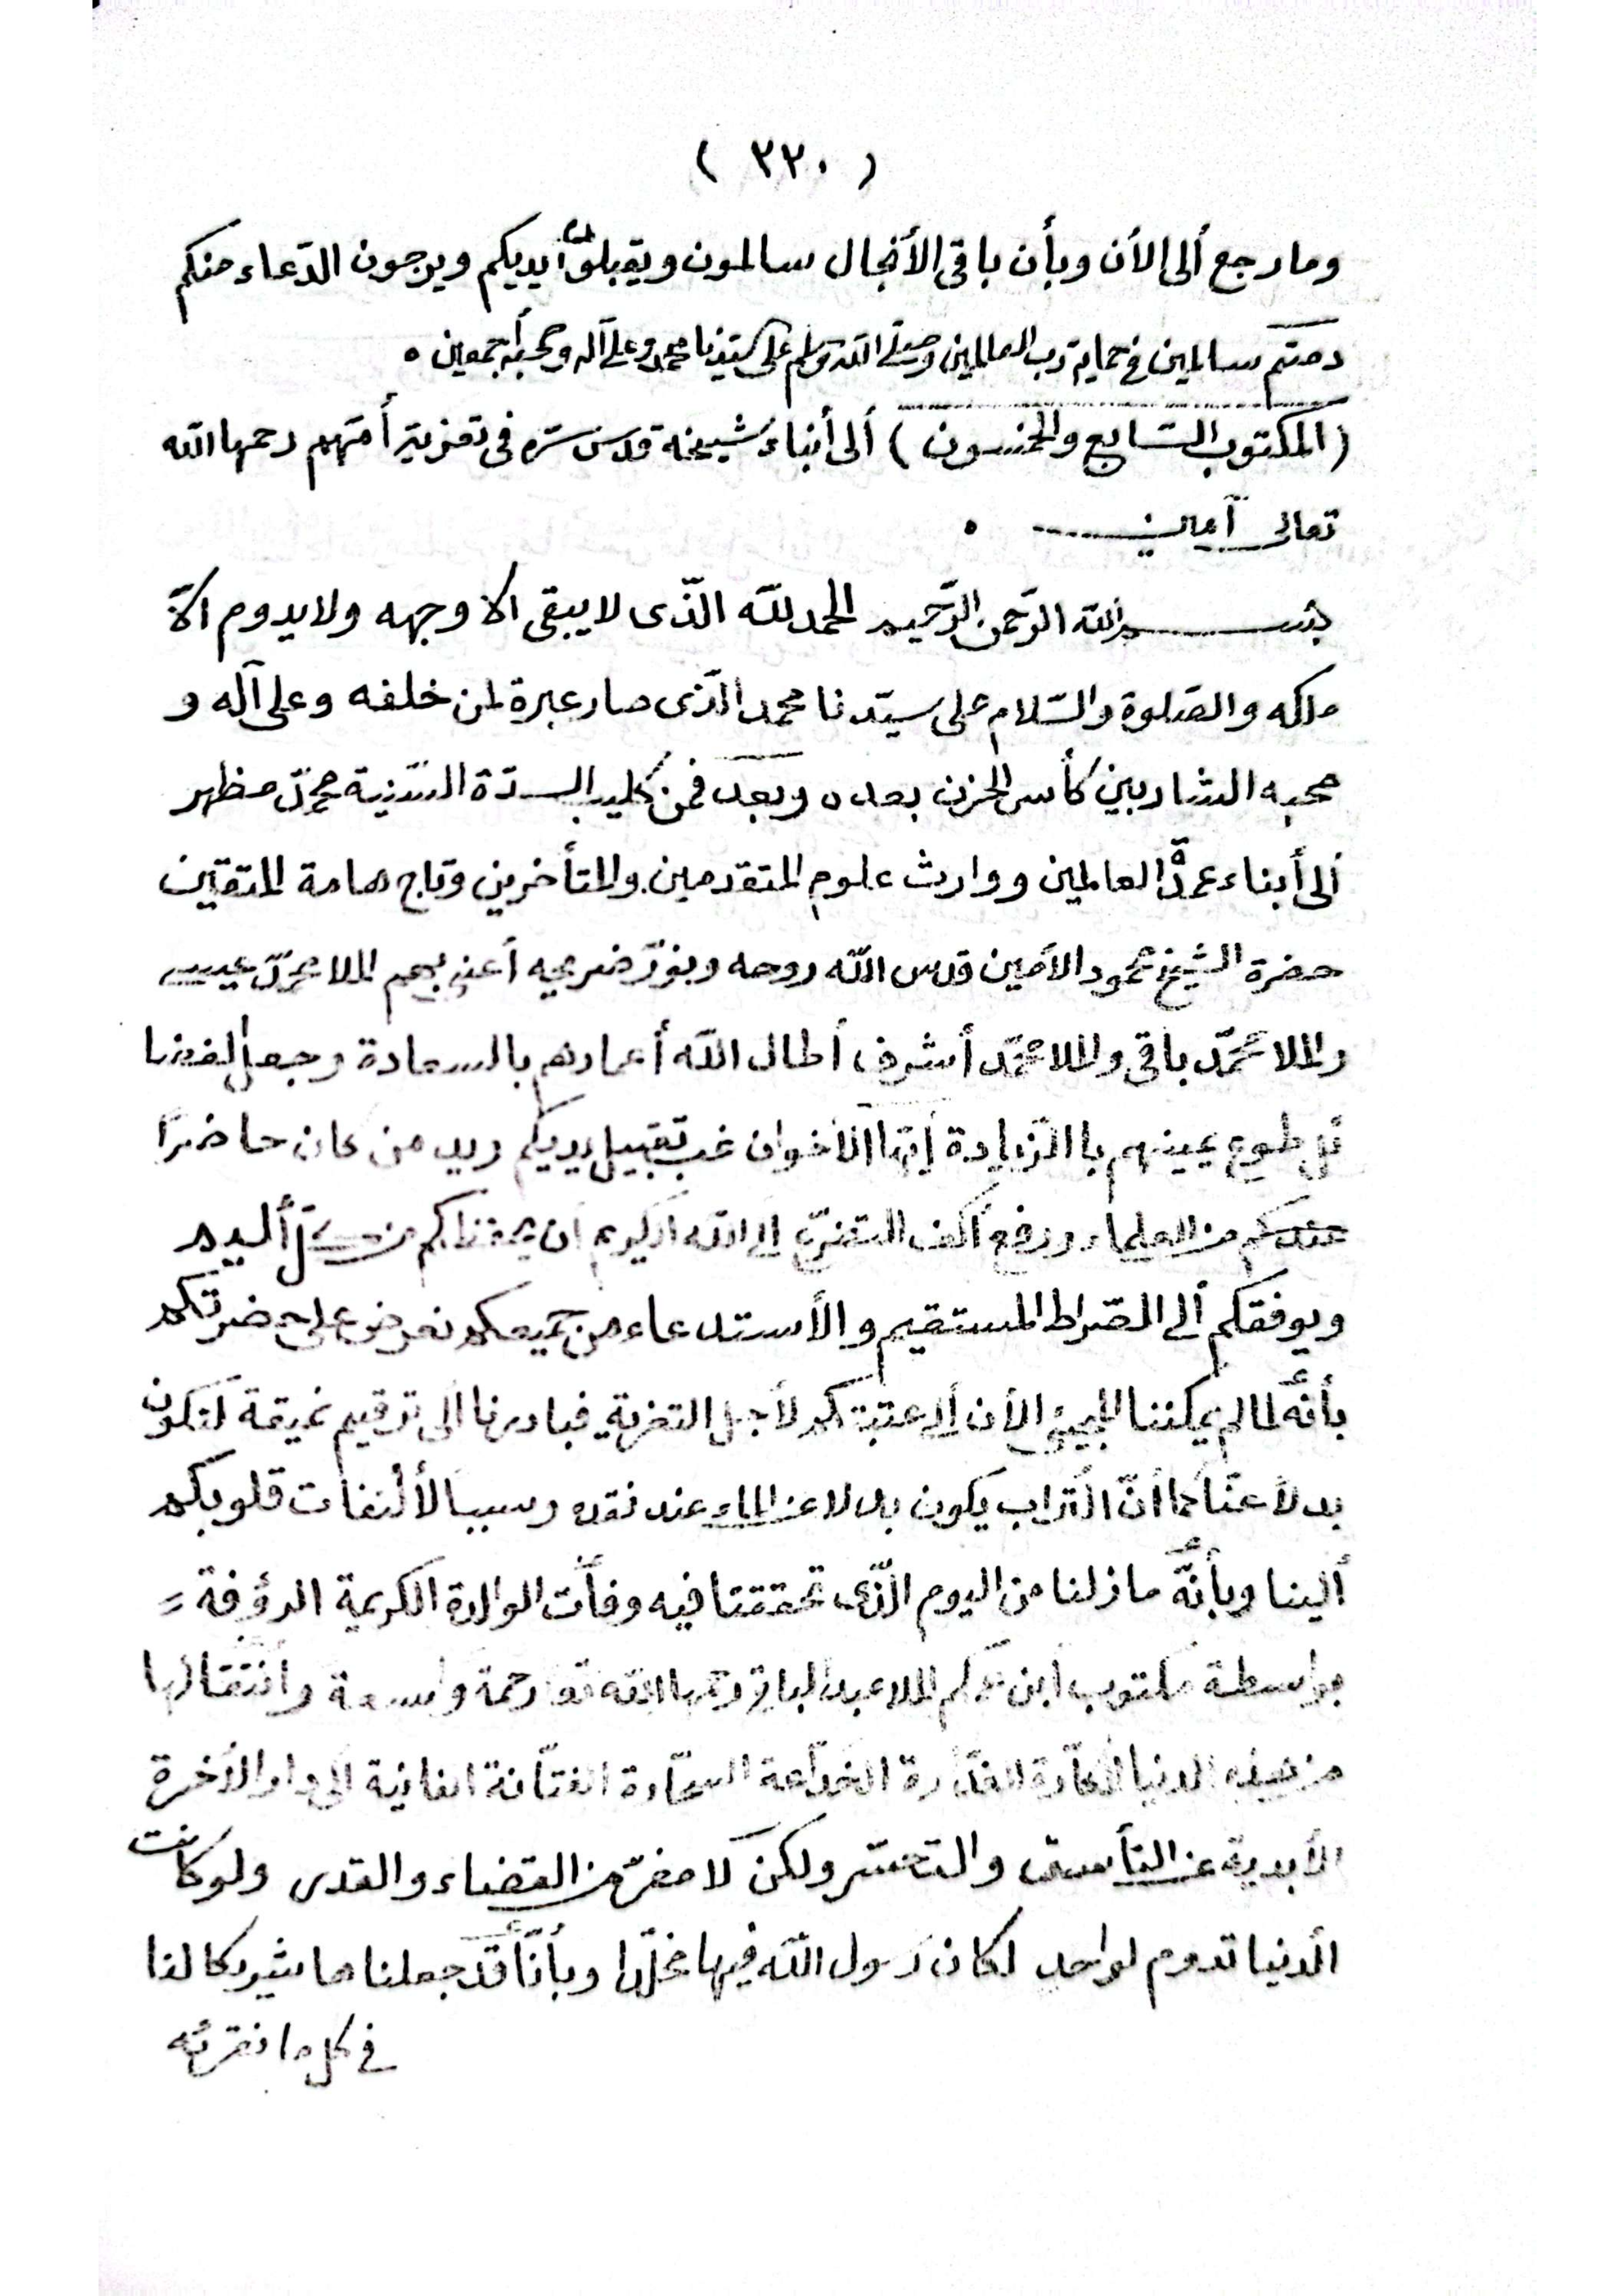 ( ٣٢٠ )
وما رجع ألى الأن وبأن باقى الأنجال سالمون ويقبلون أيديكم ويرجون الدّعاء منكم
دمتم سالمين فى حماية ربّ العالمين وصلّى الله وسلم على سيّدنا محمد وعلى آله وصحبه أجمعين ٠
( المكتوب السّابع والخمسون ) ألى أبناء شيخه قدس سّره فى تعزية أمّهم رحمها الله
تعالى آمين ٠
بسم الله الرّحمن الرّحيم الحمد لله الّذى لا يبقى الا وجهه ولا يدوم الاّ
ملكه والصّلوة والسّلام على سيّدنا محمد الّذى صار عبرة لمن خلفه وعلى آله و
صحبه الشاربين كأس الحزن بعده وبعد فمن كليب السدّة السّنية محمّد مظهر
ألى أبناء عمدة العالمين ووارث علوم المتقدمين والمتأخرين وتاج هامة المتقين
حضرة الشيخ محمود الأمين قدس الله روحه ونوّر ضريحه أعنى بهم الملا محمّد عيسى
والملا محمّد باقى والملا محمّد أشرف أطال الله أعمارهم بالسعادة وجعل
طوع يمينهم باالزّيادة أيّها الأخوان غب تقبيل يديكم ويد من كان حاضرًا
عندكم من العلماء ورفع أكف التضرّع الى الله الكريم أن يحفظكم من كلّ أليم
ويوفقكم ألى الصّراط المستقيم والأستدعاء من جميعكم نعرض على حضرتكم
بأنّه لما لم يمكننا المجيئ الأن ألى عتبتكم لأجل التعزية فبادرنا الى ترقيم نميقة لتكون
بدلاً عنّا كما أنّ التّراب يكون بدلا عن الماء عند فقده وسببا لألتفات قلوبكم
ألينا وبأنّه ما زلنا من اليوم الّذى تحققنا فيه وفات الوالدة الكريمة الرؤفة
بواسطة مكتوب ابن عمّكم الملا عبد الباقى رحمها الله تع رحمة واسعة وانتقالها
من هذه الدنيا الغدّارة الخدّاعة السحّارة الفتّانة الفانية الى دار الأخرة
الأبدية عن التأسف والتحسّر ولكن لا مفرّ من القضاء والقدر ولو كانت
الدنيا تدوم لواحد لكان رسول الله فيها مخلّدا وبأنّا قد جعلنا ما شيركا لنا
فى كل ما نقرئه